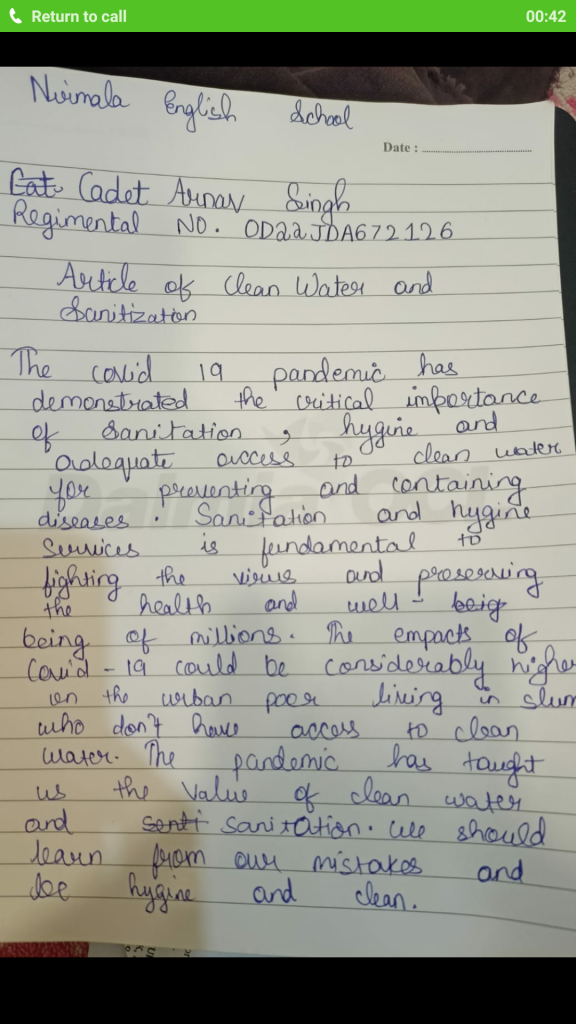 Return to call 00:42
Nirmala English School
Date :
Cat. Cadet Arnav Singh
Regimental NO. OD22JDA672126
Article of Clean Water and
Sanitization
The covid 19 pandemic has
demonstrated the critical importance
of sanitation, hygine and
adequate access to clean water
for preventing and containing
diseases. Sanitation and hygine
Services is fundamental to
fighting the virus and preserving
the health and well- beig
being of millions. The empacts of
Covid-19 could be considerably higher
on the urban poor living in slum
who don't have access to clean
water. The pandemic has taught
us the value of clean water
and senti sanitation. We should
learn from our mistakes and
be hygine and clean.